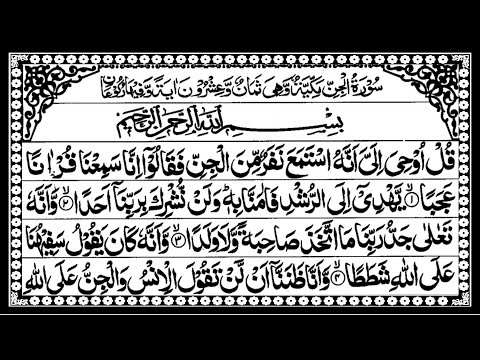 سُوْرَةُ الْجِنِّ مَكِّيَّةٌ وَّهِيَ ثَمَانٌ وَّعِشْرُوْنَ اٰيَةً وَّفِيْهَا رُكُوْعَانِ
بِسْمِ اللّٰهِ الرَّحْمٰنِ الرَّحِيْمِ
قُلْ اُوْحِيَ اِلَيَّ اَنَّهُ اسْتَمَعَ نَفَرٌ مِّنَ الْجِنِّ فَقَالُوْٓا اِنَّا سَمِعْنَا قُرْاٰنًا
عَجَبًا ۝١ يَّهْدِيْٓ اِلَى الرُّشْدِ فَاٰمَنَّا بِهٖ ؕ وَلَنْ نُّشْرِكَ بِرَبِّنَآ اَحَدًا ۝٢ وَّاَنَّهٗ
تَعٰلٰى جَدُّ رَبِّنَا مَا اتَّخَذَ صَاحِبَةً وَّلَا وَلَدًا ۝٣ وَّاَنَّهٗ كَانَ يَقُوْلُ سَفِيْهُنَا
عَلَى اللّٰهِ شَطَطًا ۝٤ وَّاَنَّا ظَنَنَّآ اَنْ لَّنْ تَقُوْلَ الْاِنْسُ وَالْجِنُّ عَلَى اللّٰهِ